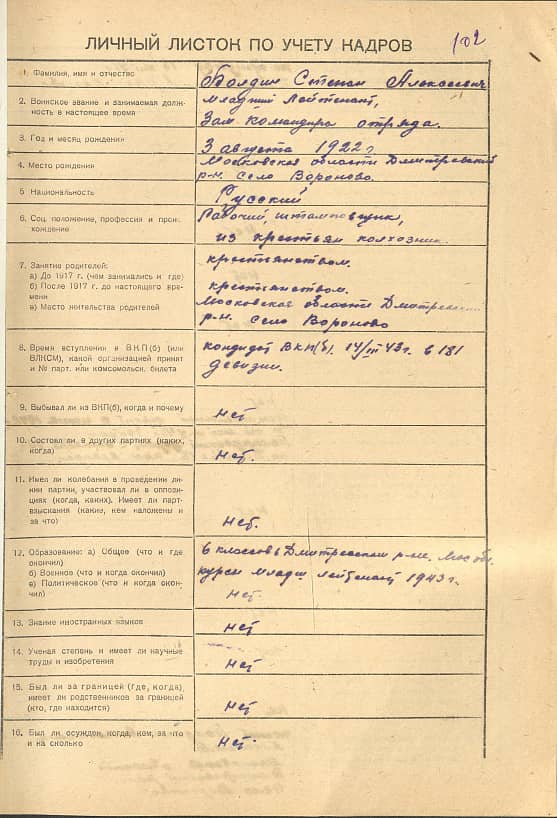 102
ЛИЧНЫЙ ЛИСТОК ПО УЧЕТУ КАДРОВ
1. Фамилия, имя и отчество
Болдин Степан Алексеевич
2. Воинское звание и занимаемая долж-
ность в настоящее время
младший лейтенант,
Зам командира отряда.
3. Год и месяц рождения
3 августа 1922 г
4. Место рождения
Московская области Дмитревский
р-н. село Вороново.
5 Национальность
Русский
6. Соц. положение, профессия и проис-
хождение
Рабочий, штамповщик,
из крестьян колхозник.
7. Занятие родителей:
а) До 1917 г. (чем занимались и где)
б) После 1917 г. до настоящего вре-
мени
в) Место жительства родителей
крестьянством.
крестьянством.
Московская области Дмитревский
р-н. село Вороново
8. Время вступления в ВКП(б) (или
ВЛКСМ), какой организацией принят
и № парт. или комсомольск. билета
кондидат ВКП(б). 14/III 43 г. в 181
дивизии.
9. Выбывал ли из ВКП(б), когда и почему
нет
10. Состоял ли в других партиях (каких,
когда)
нет.
11. Имел ли колебания в проведении ли-
нии партии, участвовал ли в оппози-
циях (когда, каких). Имеет ли парт-
взыскания (какие, кем наложены и
за что)
нет.
12. Образование: а) Общее (что и где
окончил)
б) Военное (что и когда окончил)
в) Политическое (что и когда окон-
чил)
6 классов Дмитревском р-не. Мос об.
курсы младш лейтенант 1943 г.
нет
13. Знание иностранных языков
нет
14. Ученая степень и имеет ли научные
труды и изобретения
нет
15. Был ли за границей (где, когда),
имеет ли родственников за границей
(кто, где находится)
нет
16. Был ли осужден, когда, кем, за что
и на сколько
нет.